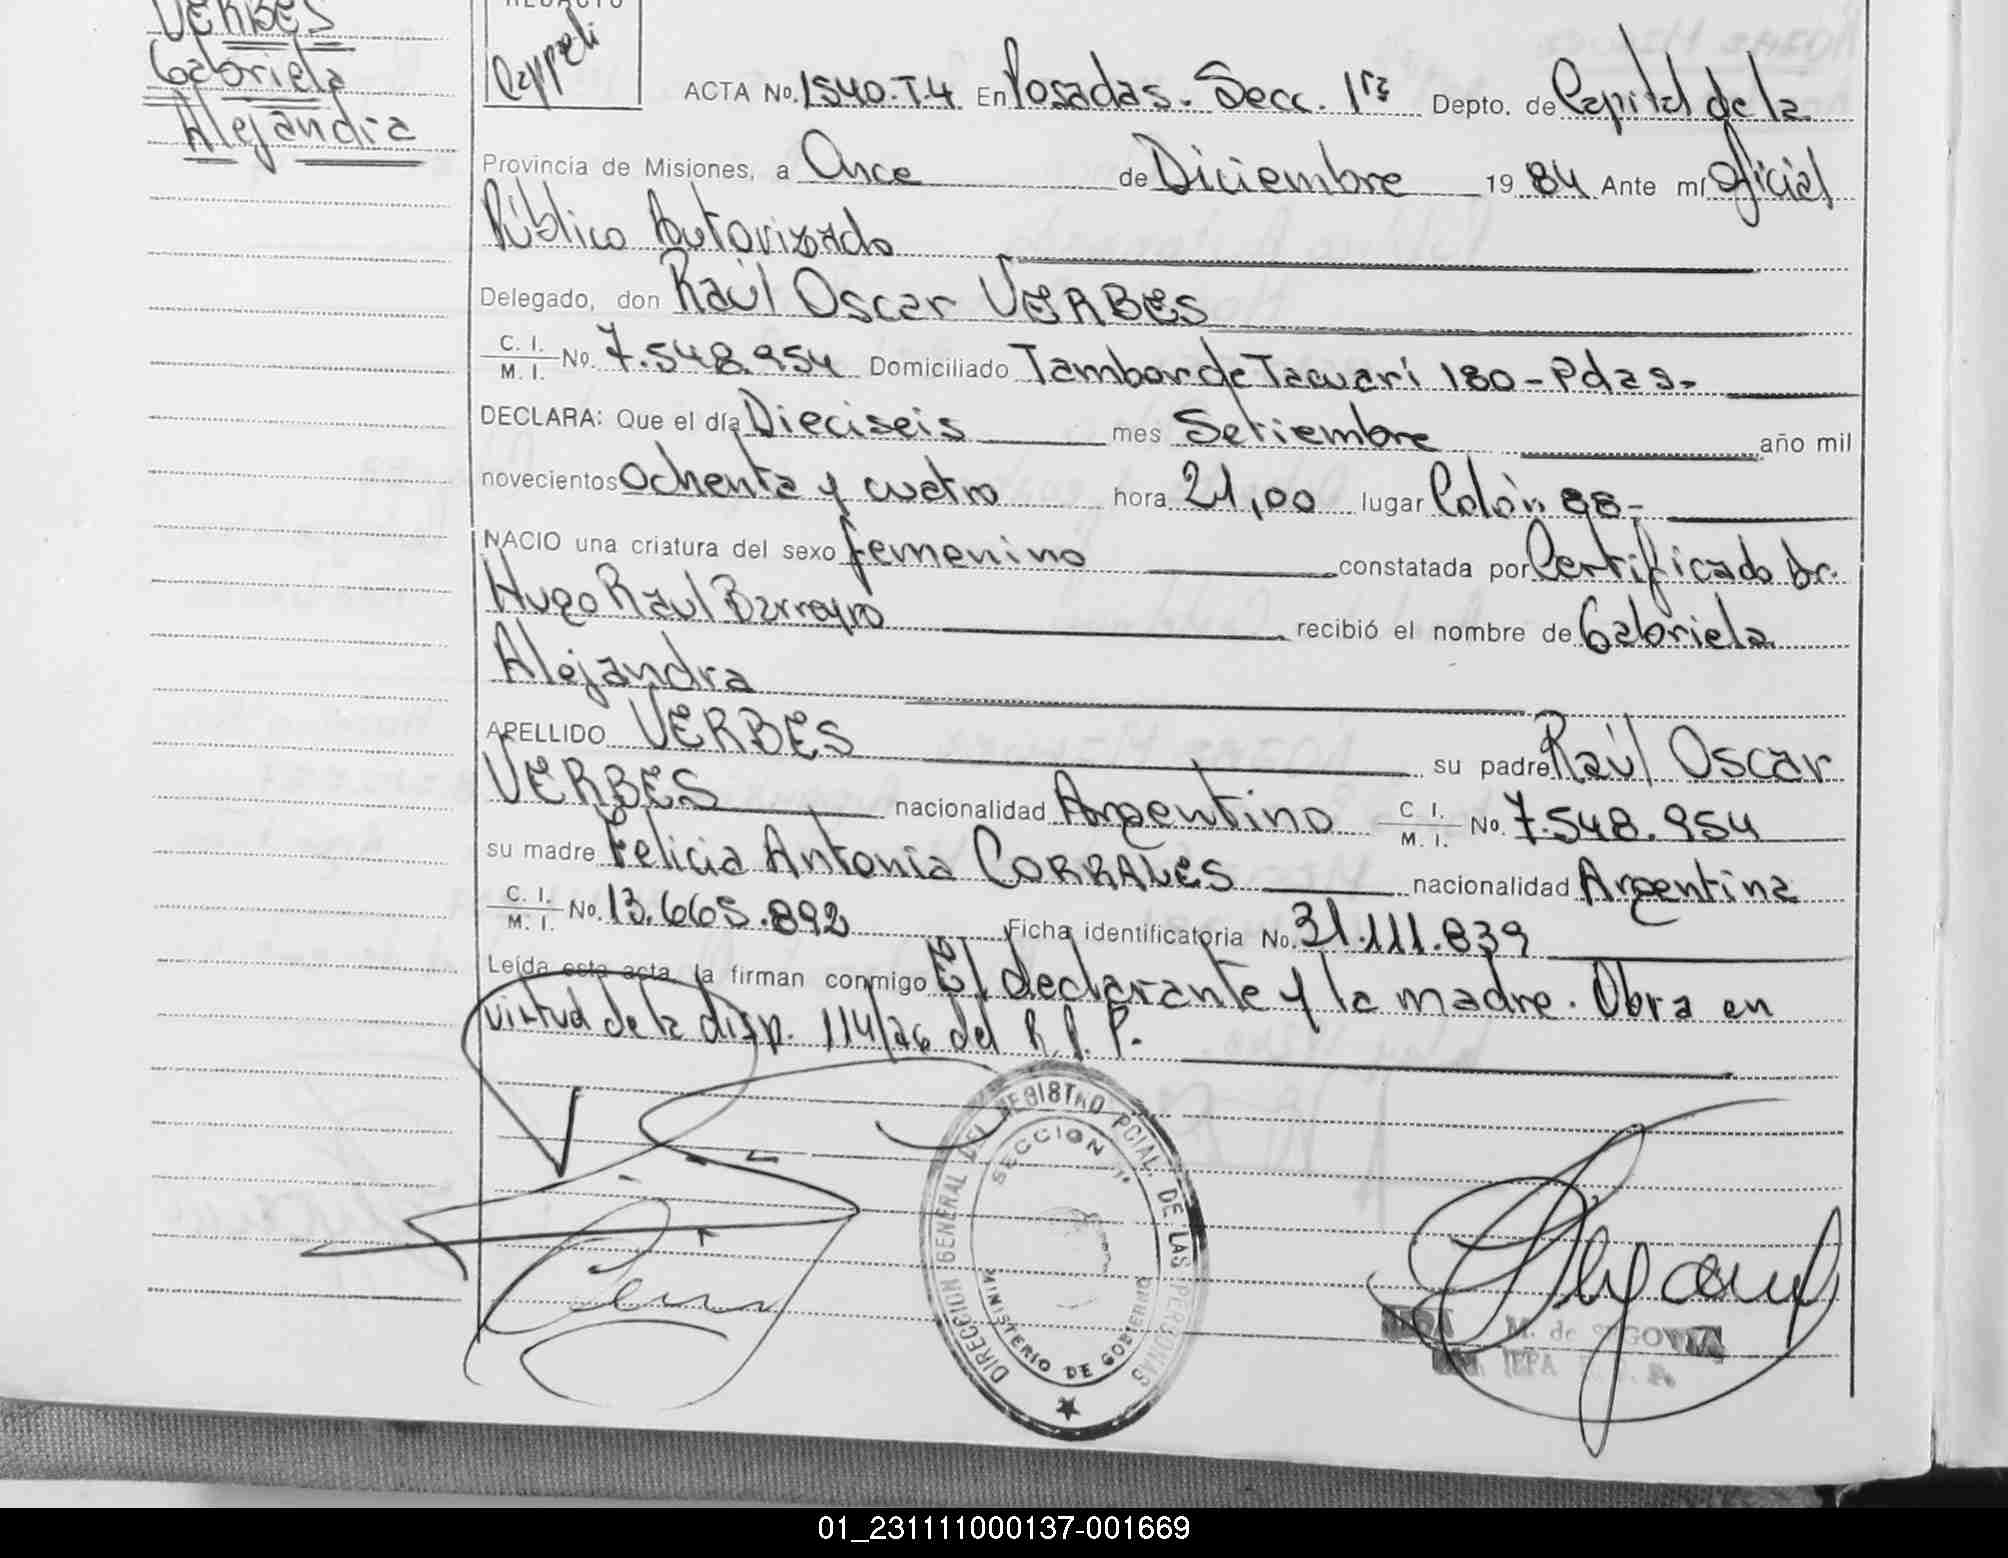 VERBES
Gabriela
Alejandra
REDACTO
Cappeli
ACTA No. 1540.T.4 En Posadas. Secc. 1ra Depto. de Capital de la
Provincia de Misiones, a Once de Diciembre 19 84 Ante mí Oficial
Público Autorizado
Delegado, don Raúl Oscar VERBES
C. I.
M. I. No. 7.548.954 Domiciliado Tambor de Tacuarí 180 - Pdas -
DECLARA: Que el día Dieciseis mes Setiembre año mil
novecientos Ochenta y cuatro hora 21,00 lugar Colón 98 -
NACIO una criatura del sexo femenino constatada por Certificado Dr.
Hugo Raúl Barreyro recibió el nombre de Gabriela
Alejandra
APELLIDO VERBES su padre Raúl Oscar
VERBES nacionalidad Argentino C. I.
M. I. No. 7.548.954
su madre Felicia Antonia CORRALES nacionalidad Argentina
C. I.
M. I. No. 13.665.892 Ficha identificatoria No. 31.111.839
Leída esta acta, la firman conmigo El declarante y la madre. Obra en
virtud de la disp. 114/76 del R.P.P.
DIRECCION GENERAL DEL REGISTRO PCIAL. DE LAS PERSONAS
SECCION 1º
MINISTERIO DE GOBIERNO
M. de SEGOVIA
01_231111000137-001669